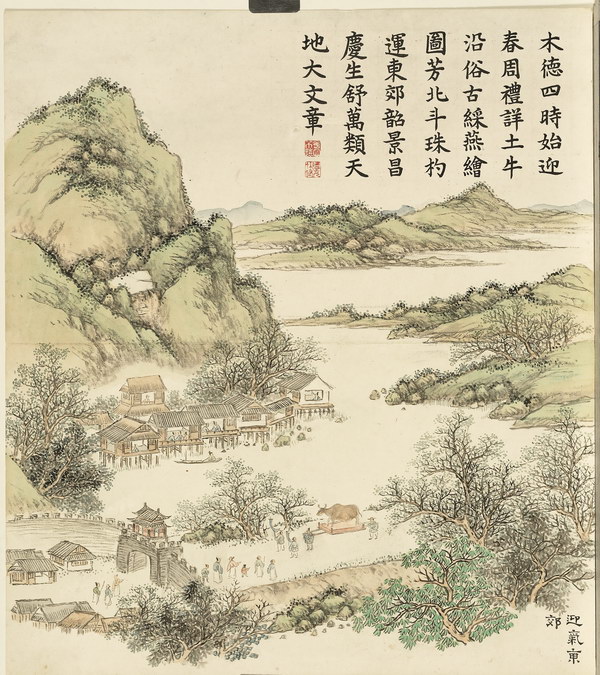 木德四時始迎
春周禮詳土牛
沿俗古綵燕繪
圖芳北斗珠杓
運東郊韶景昌
慶生舒萬類天
地大文章
迎氣東
郊